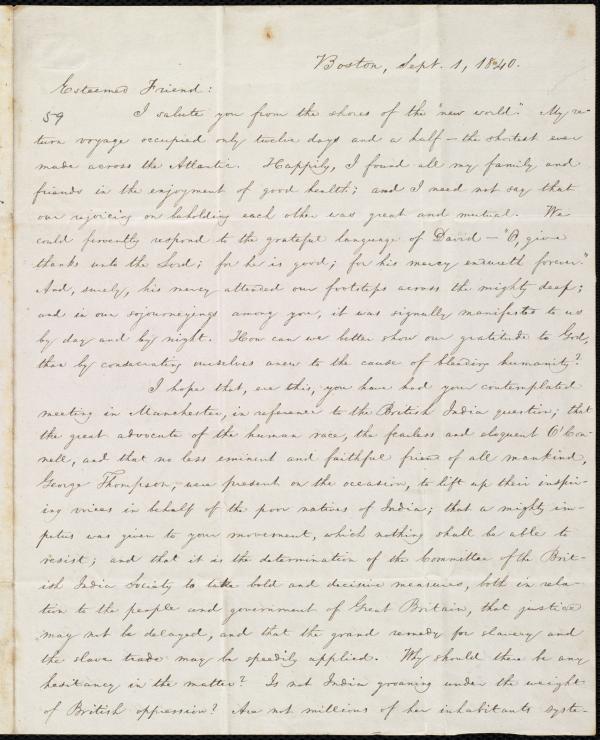 Boston, Sept. 1, 1840.
Esteemed Friend:
59 I salute you from the shores of the "new world." My re-
turn voyage occupied only twelve days and a half — the shortest ever
made across the Atlantic. Happily, I found all my family and
friends in the enjoyment of good health; and I need not say that
our rejoicing on beholding each other was great and mutual. We
could fervently respond to the grateful language of David — "O, give
thanks unto the Lord; for he is good; for his mercy endureth forever."
And, surely, his mercy attended our footsteps across the mighty deep;
and in our sojourneyings among you, it was signally manifested to us
by day and by night. How can we better show our gratitude to God,
than by consecrating ourselves anew to the cause of bleeding humanity?
I hope that, ere this, you have had your contemplated
meeting in Manchester, in reference to the British India question; that
the great advocate of the human race, the fearless and eloquent O'Con-
nell, and that no less eminent and faithful friend of all mankind,
George Thompson, were present on the occasion, to lift up their inspir-
ing voices in behalf of the poor natives of India; that a mighty im-
petus was given to your movement, which nothing shall be able to
resist; and that it is the determination of the Committee of the Brit-
ish India Society to take bold and decisive measures, both in rela-
tion to the people and government of Great Britain, that justice
may not be delayed, and that the grand remedy for slavery and
the slave trade may be speedily applied. Why should there be any
hesitancy in the matter? Is not India groaning under the weight
of British oppression? Are not millions of her inhabitants syste-